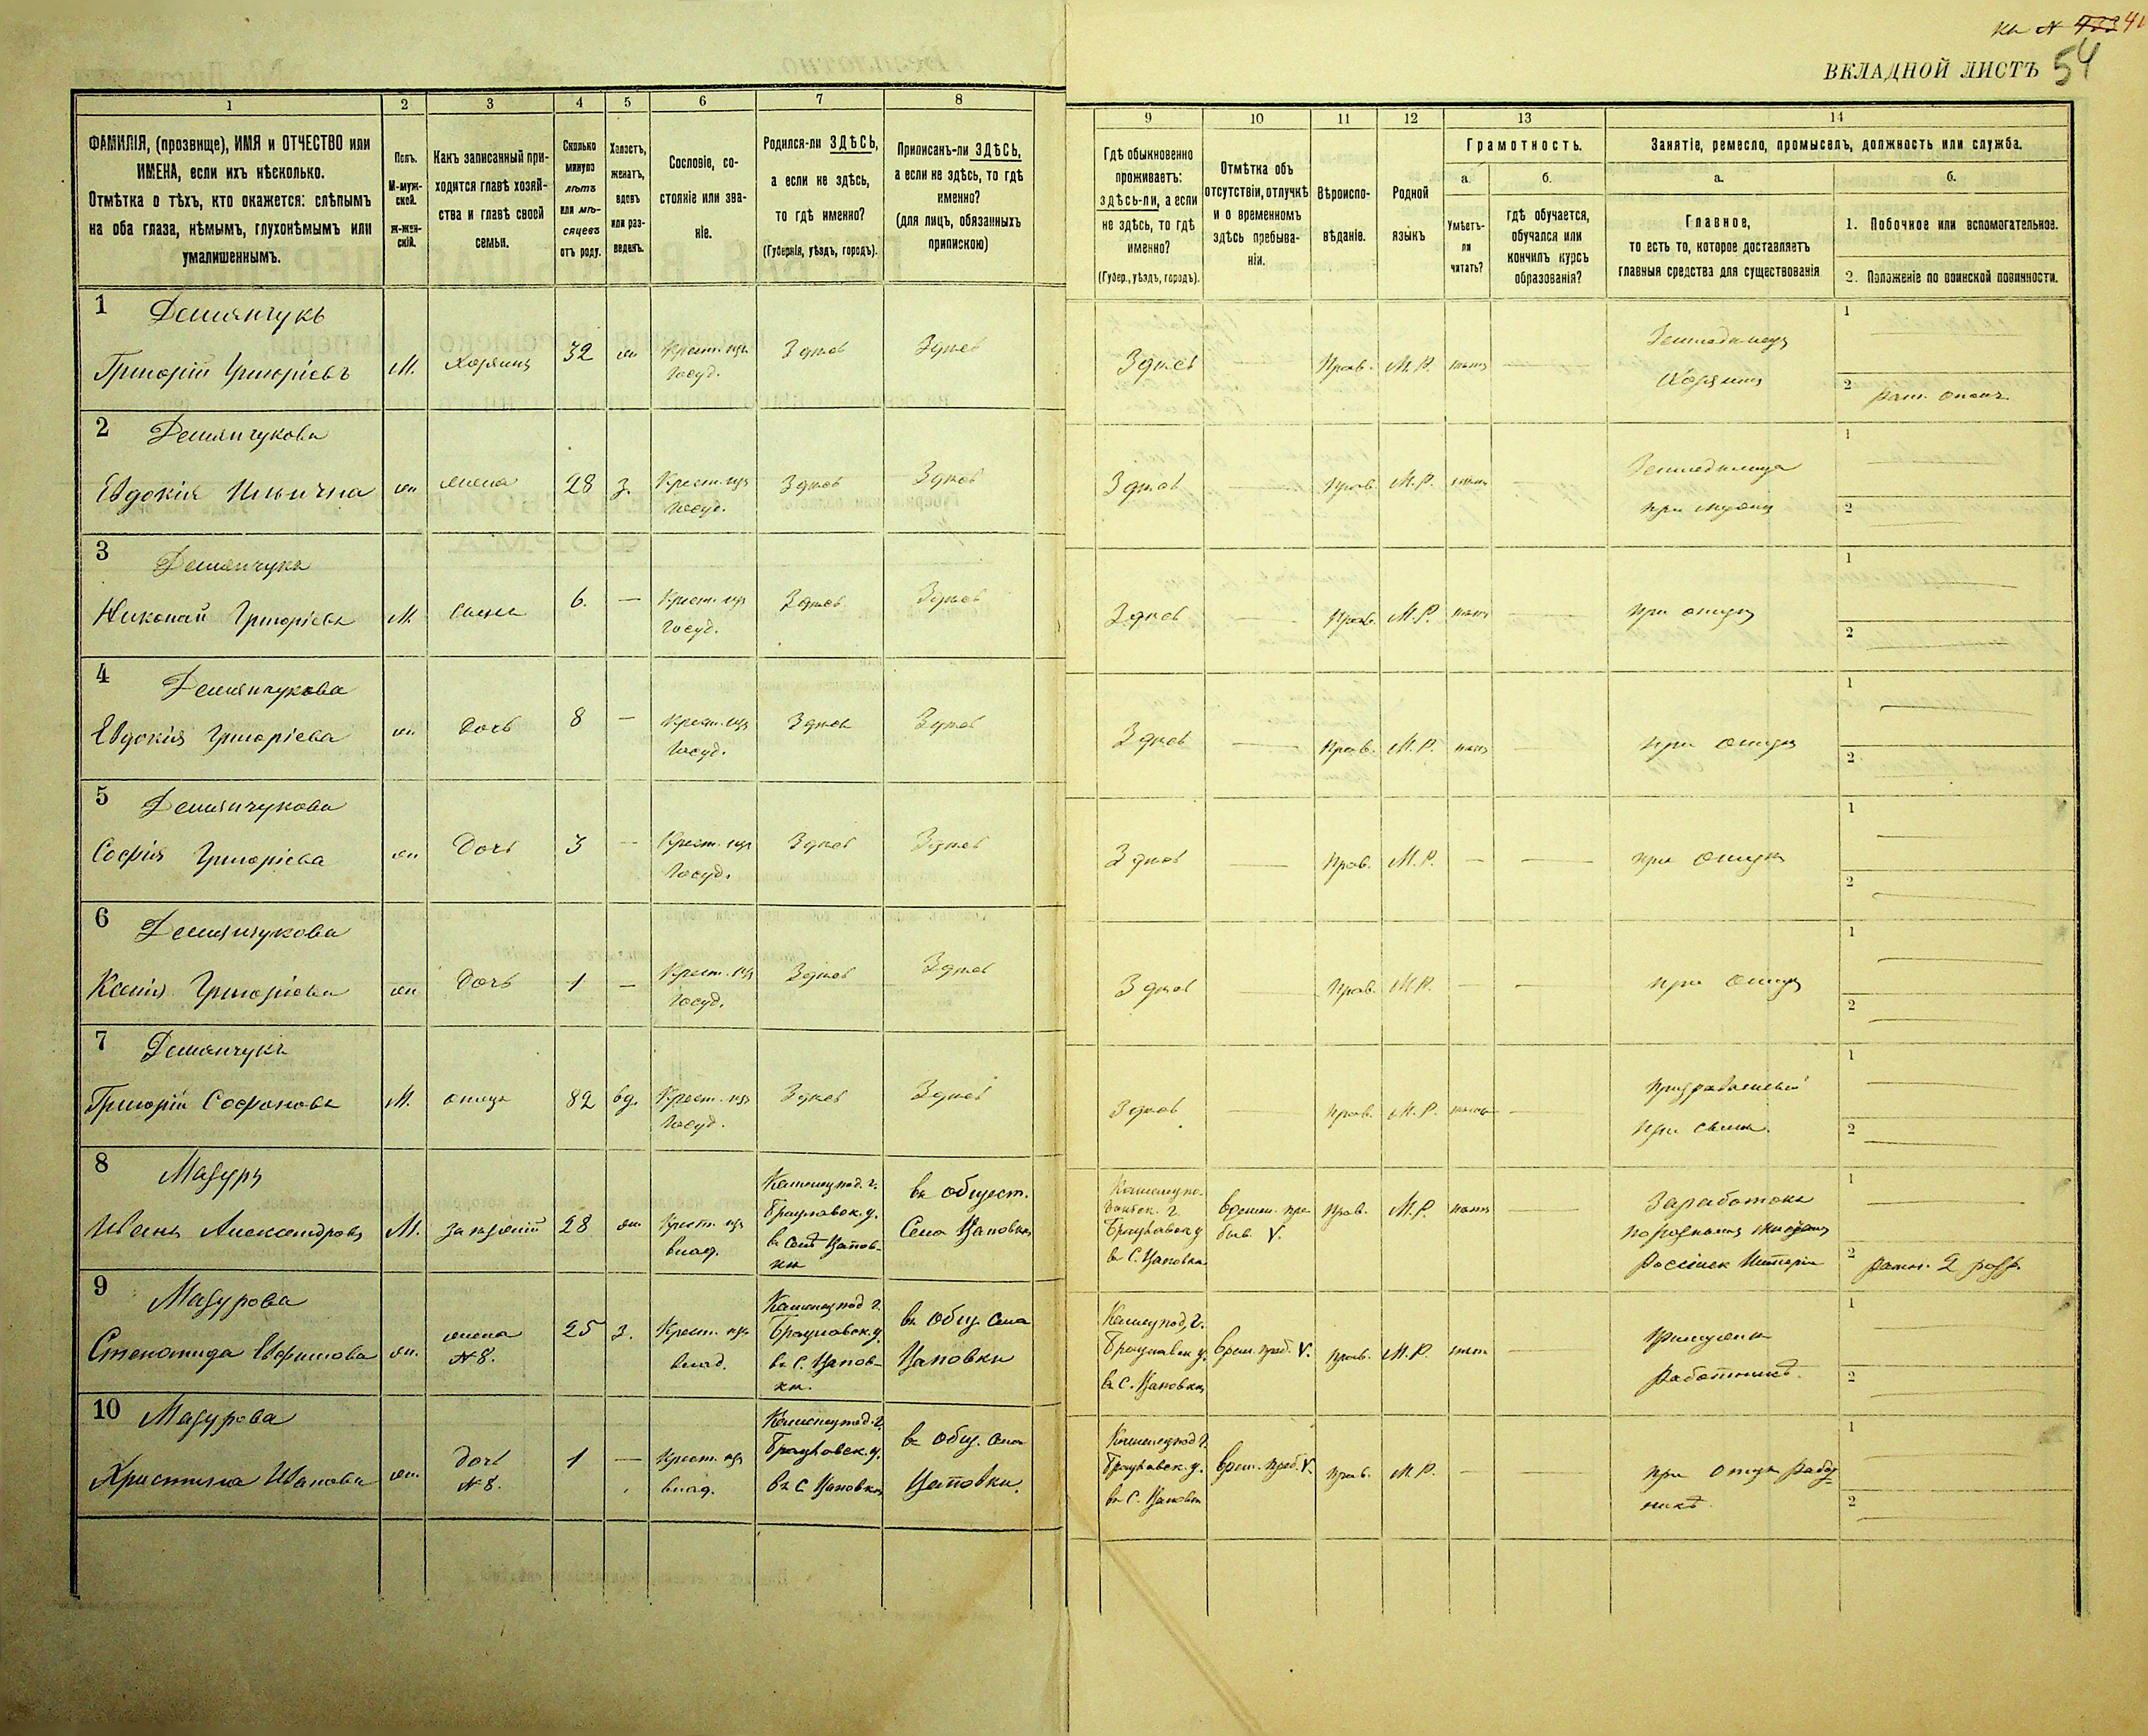 ВКЛАДНОЙ ЛИСТЪ 54
1 2 3 4 5 6 7 8 9 10 11 12 13 14
ФАМИЛІЯ, (прозвище), ИМЯ и ОТЧЕСТВО или
ИМЕНА, если ихъ нѣсколько.
Отмѣтка о тѣхъ, кто окажется: слѣпымъ
на оба глаза, нѣмымъ, глухонѣмымъ или
умалишеннымъ.
Полъ.
М-муж-
ской.
Ж-жен-
скій.
Какъ записанный при-
ходится главѣ хозяй-
ства и главѣ своей
семьи.
Сколько
минуло
лѣтъ
или мѣ-
сяцевъ
отъ роду.
Холостъ,
женатъ,
вдовъ
или раз-
веденъ.
Сословіе, со-
стояніе или зва-
ніе.
Родился-ли ЗДѢСЬ,
а если не здѣсь,
то гдѣ именно?
(Губернія, уѣздъ, городъ).
Приписанъ-ли ЗДѢСЬ,
а если не здѣсь, то гдѣ
именно?
(для лицъ, обязанныхъ
припискою)
Гдѣ обыкновенно
проживаетъ:
здѣсь-ли, а если
не здѣсь, то гдѣ
именно?
(Губер., уѣздъ, городъ).
Отмѣтка объ
отсутствіи, отлучкѣ
и о временномъ
здѣсь пребыва-
ніи.
Вѣроиспо-
вѣданіе.
Родной
языкъ
Грамотность.
а.
Умѣетъ-
ли
читать?
б.
гдѣ обучается,
обучался или
кончилъ курсъ
образованія?
Занятіе, ремесло, промыселъ, должность или служба.
а.
Главное,
то есть то, которое доставляетъ
главныя средства для существованія
б.
1. Побочное или вспомогательное.
2. Положеніе по воинской повинности.
1 Демянчукъ
Григорій Григоріевъ М. Хозяинъ 32 ж Крест. изъ Госуд. Здѣсь Здѣсь Здѣсь — Прав. М.Р. нѣтъ —
Земледѣлецъ
Хозяинъ
1 —
2 Рат. ополч.
2 Демянчукова
Евдокія Ильична ж жена 28 з. Крест. изъ Госуд. Здѣсь Здѣсь Здѣсь — Прав. М.Р. нѣтъ —
при мужѣ
1 —
2 —
3 Демянчукъ
Николай Григорьевъ М сынъ 6. — Крест. изъ Госуд. Здѣсь Здѣсь Здѣсь — Прав. М.Р. нѣтъ —
при отцѣ
1 —
2 —
4 Демянчукова
Евдокія Григоріева ж. дочь 8 — Крест. изъ Госуд. Здѣсь Здѣсь Здѣсь — Прав. М.Р. нѣтъ —
при отцѣ
1 —
2 —
5 Демянчукова
Софія Григоріева ж дочь 3 — Крест. изъ Госуд. Здѣсь Здѣсь Здѣсь — Прав. М.Р. — —
при отцѣ
1 —
2 —
6 Демянчукова
Ксенія Григоріева ж дочь 1 — Крест. изъ Госуд. Здѣсь Здѣсь Здѣсь — Прав. М.Р. — —
при отцѣ
1 —
2 —
7 Демянчукъ
Григорій Софроновъ М. отецъ 82 вд. Крест. изъ Госуд. Здѣсь Здѣсь Здѣсь — Прав. М.Р. нѣтъ —
при сынѣ.
1 —
2 —
8 Мазуръ
Иванъ Александровъ М. 28 ж. Крест. изъ влад.
Каменецпод. г.
Брацлавск. у.
въ селѣ Цаповкѣ
въ общест.
Села Цаповки
Брацлавск у
въ С. Цаповкѣ
времен. пребыв. V.
Прав. М.Р. нѣтъ —
Заработокъ
1 —
2 Ратн. 2 разр.
9 Мазурова
Степанида Ефимова ж. жена №8. 25 з. Крест. изъ влад.
Каменецпод г.
Брацлавск. у.
въ С. Цаповки.
въ общ. Села
Цаповки
Каменецпод. г.
Брацлавск у.
въ С. Цаповкѣ
врем. преб. V.
Прав. М.Р. нѣтъ —
1 —
2 —
10 Мазурова
Христина Иванова ж. дочь №8. 1 — Крест. изъ влад.
Каменецпод. г.
Брацлавск. у.
въ С Цаповкѣ
въ общ. Села
Цаповки.
Каменецпод г.
Брацлавск. у.
въ С. Цаповкѣ
врем. преб. V.
Прав. М.Р. — —
при отцѣ
1 —
2 —